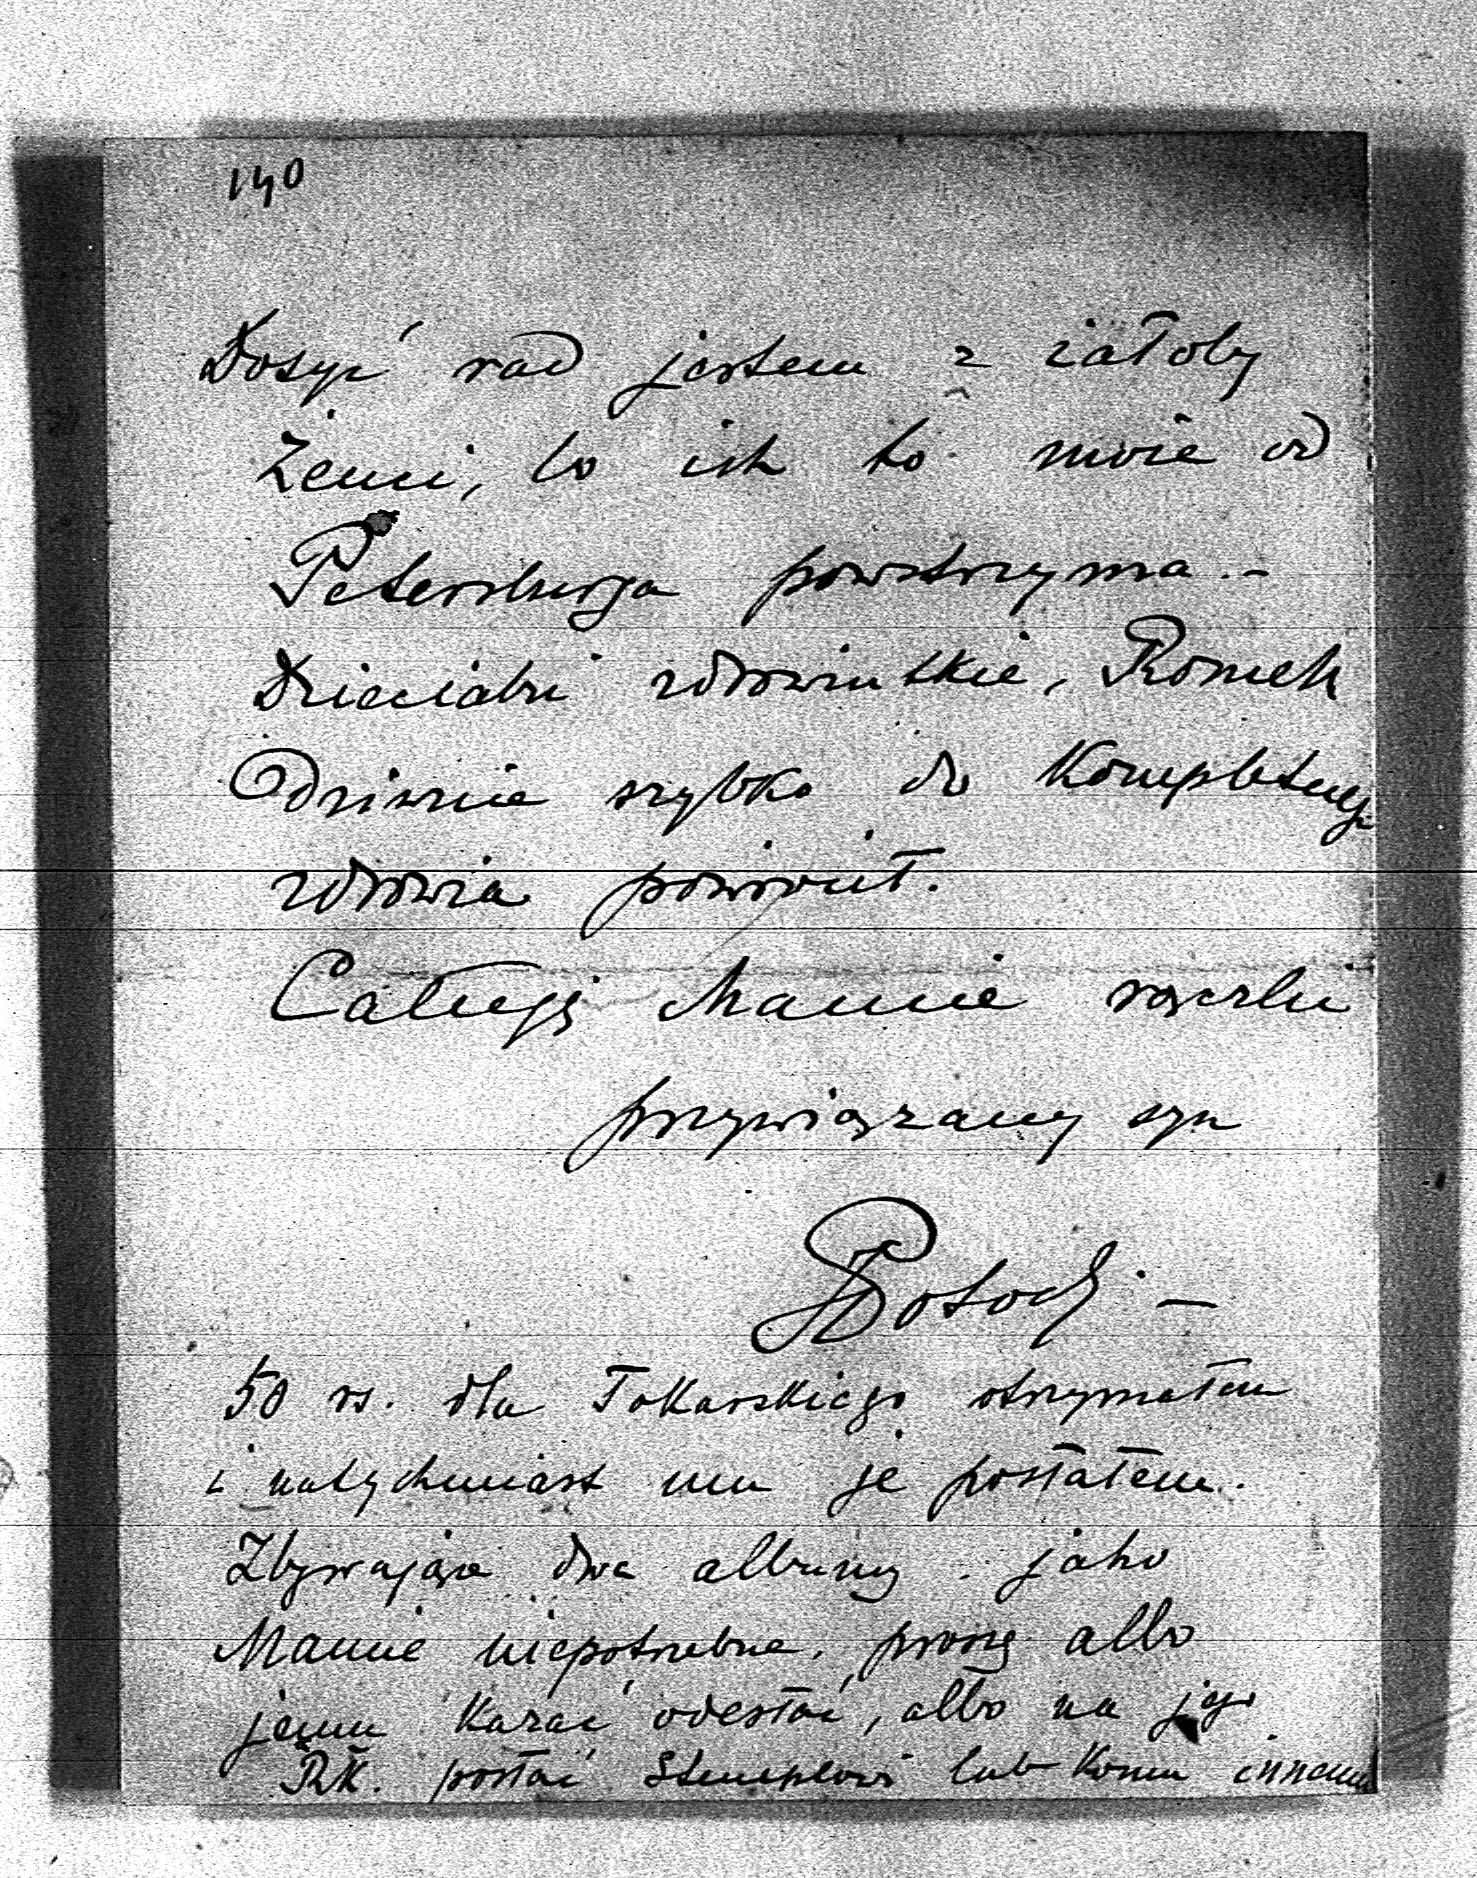 140
Dosyć rad jestem z żałoby
Żeni, bo ich to może od
Petersburga powstrzyma. -
Dzieciaki zdrowiutkie, Romek
dziwnie szybko do kompletnego
zdrowia powrócił.
Całuję Mamie rączki
przywiązany syn
Potocki —
50 rs. dla Tokarskiego otrzymałem
i natychmiast mu je posłałem.
Zbywające dwa albumy jako
Mamie niepotrzebne, proszę albo
jemu kazać odesłać, albo na jego
Rk. posłać Stemplowi lub komu innemu